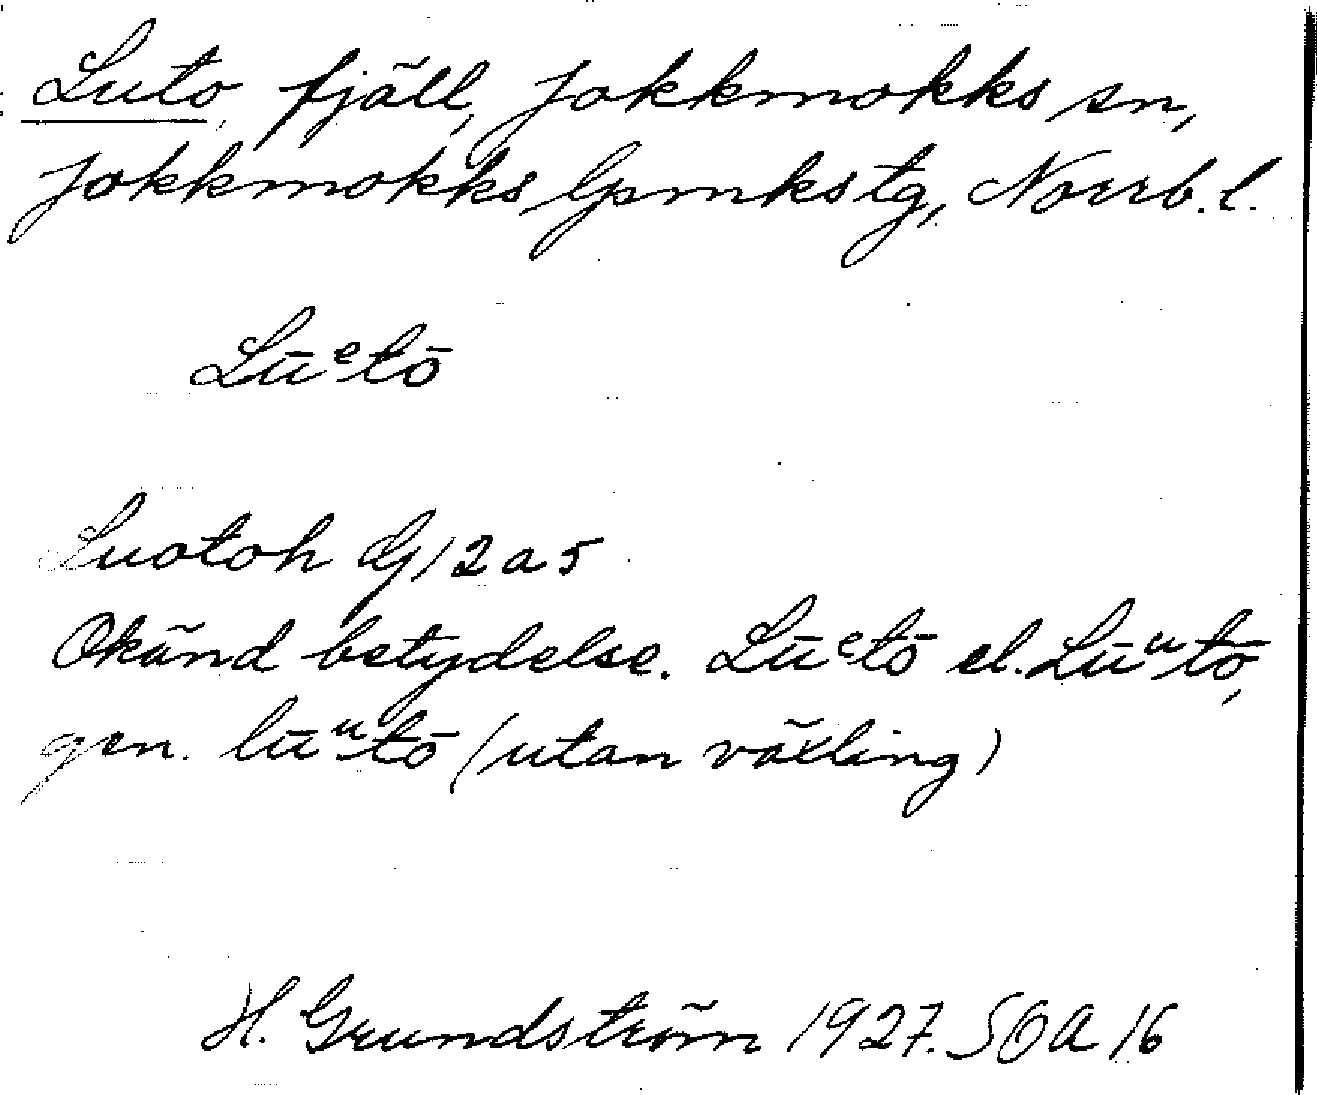 Luto, fjäll, Jokkmokks sn,
Jokkmokks lpmkstg, Norrb. l.
Lūᵉtō
Luotoh Gj 2 a 5
Okänd betydelse. Lūᵉtō el. Lūᵘtō,
gen. lūᵘtō (utan växling)
H. Grundström 1927. SOA 16